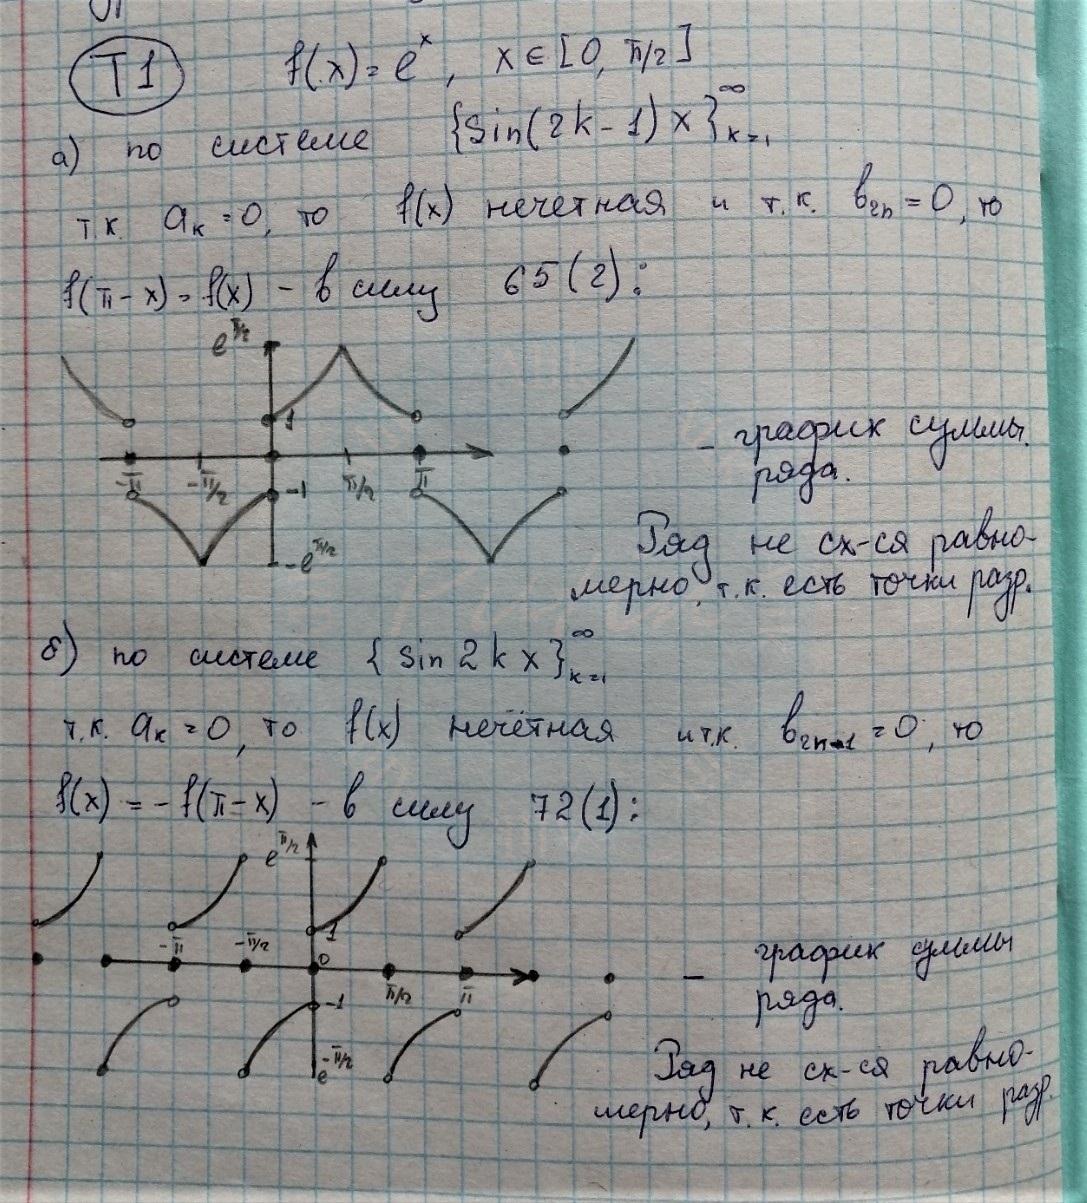 T1 f(x) = e^x, x ∈ [0, π/2]
а) по системе {sin(2k-1)x}_{k=1}^∞
т.к. a_k = 0, то f(x) нечетная и т.к. b_{2n} = 0, то
f(π-x) = f(x) - в силу 65(2):
e^{π/2}
1
-π -π/2 π/2 π
-1
-e^{π/2}
- график суммы
ряда.
Ряд не сх-ся равно-
мерно, т.к. есть точки разр.
б) по системе {sin 2kx}_{k=1}^∞
т.к. a_k = 0, то f(x) нечётная и т.к. b_{2n-1} = 0, то
f(x) = -f(π-x) - в силу 72(1):
e^{π/2}
1
-π -π/2 0 π/2 π
-1
e^{-π/2}
- график суммы
ряда.
Ряд не сх-ся равно-
мерно, т.к. есть точки разр.